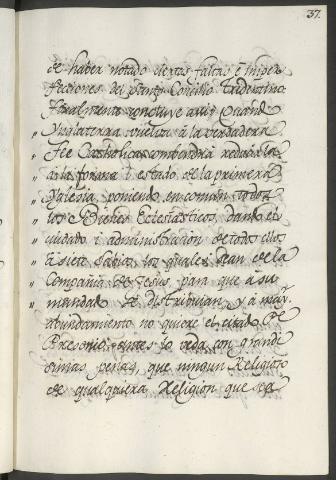 37.
de haber notado ciertas faltas, è imper
fecciones del Santo Concilio Tridentino.
Finalmente concluye assi: Quando
„ Inglaterra vuelva à la verdadera
„ Fee Catholica combendrà reducirla
„ à la forma i estado de la primera
„ Yglesia, poniendo en comun todos
„ los Bienes Eclesiasticos, dando el
„ cuidado i administracion de todos ellos
„ à siete Sabios, los quales sean de la
„ Compañia de Jesus, para que à su
„ mandado se distribuian, y à maÿr.
abundamiento no quiere el citado
Presonio, antes lo veda con grandi
simas penas, que ningun Religioso
de qualquiera Religion que sea